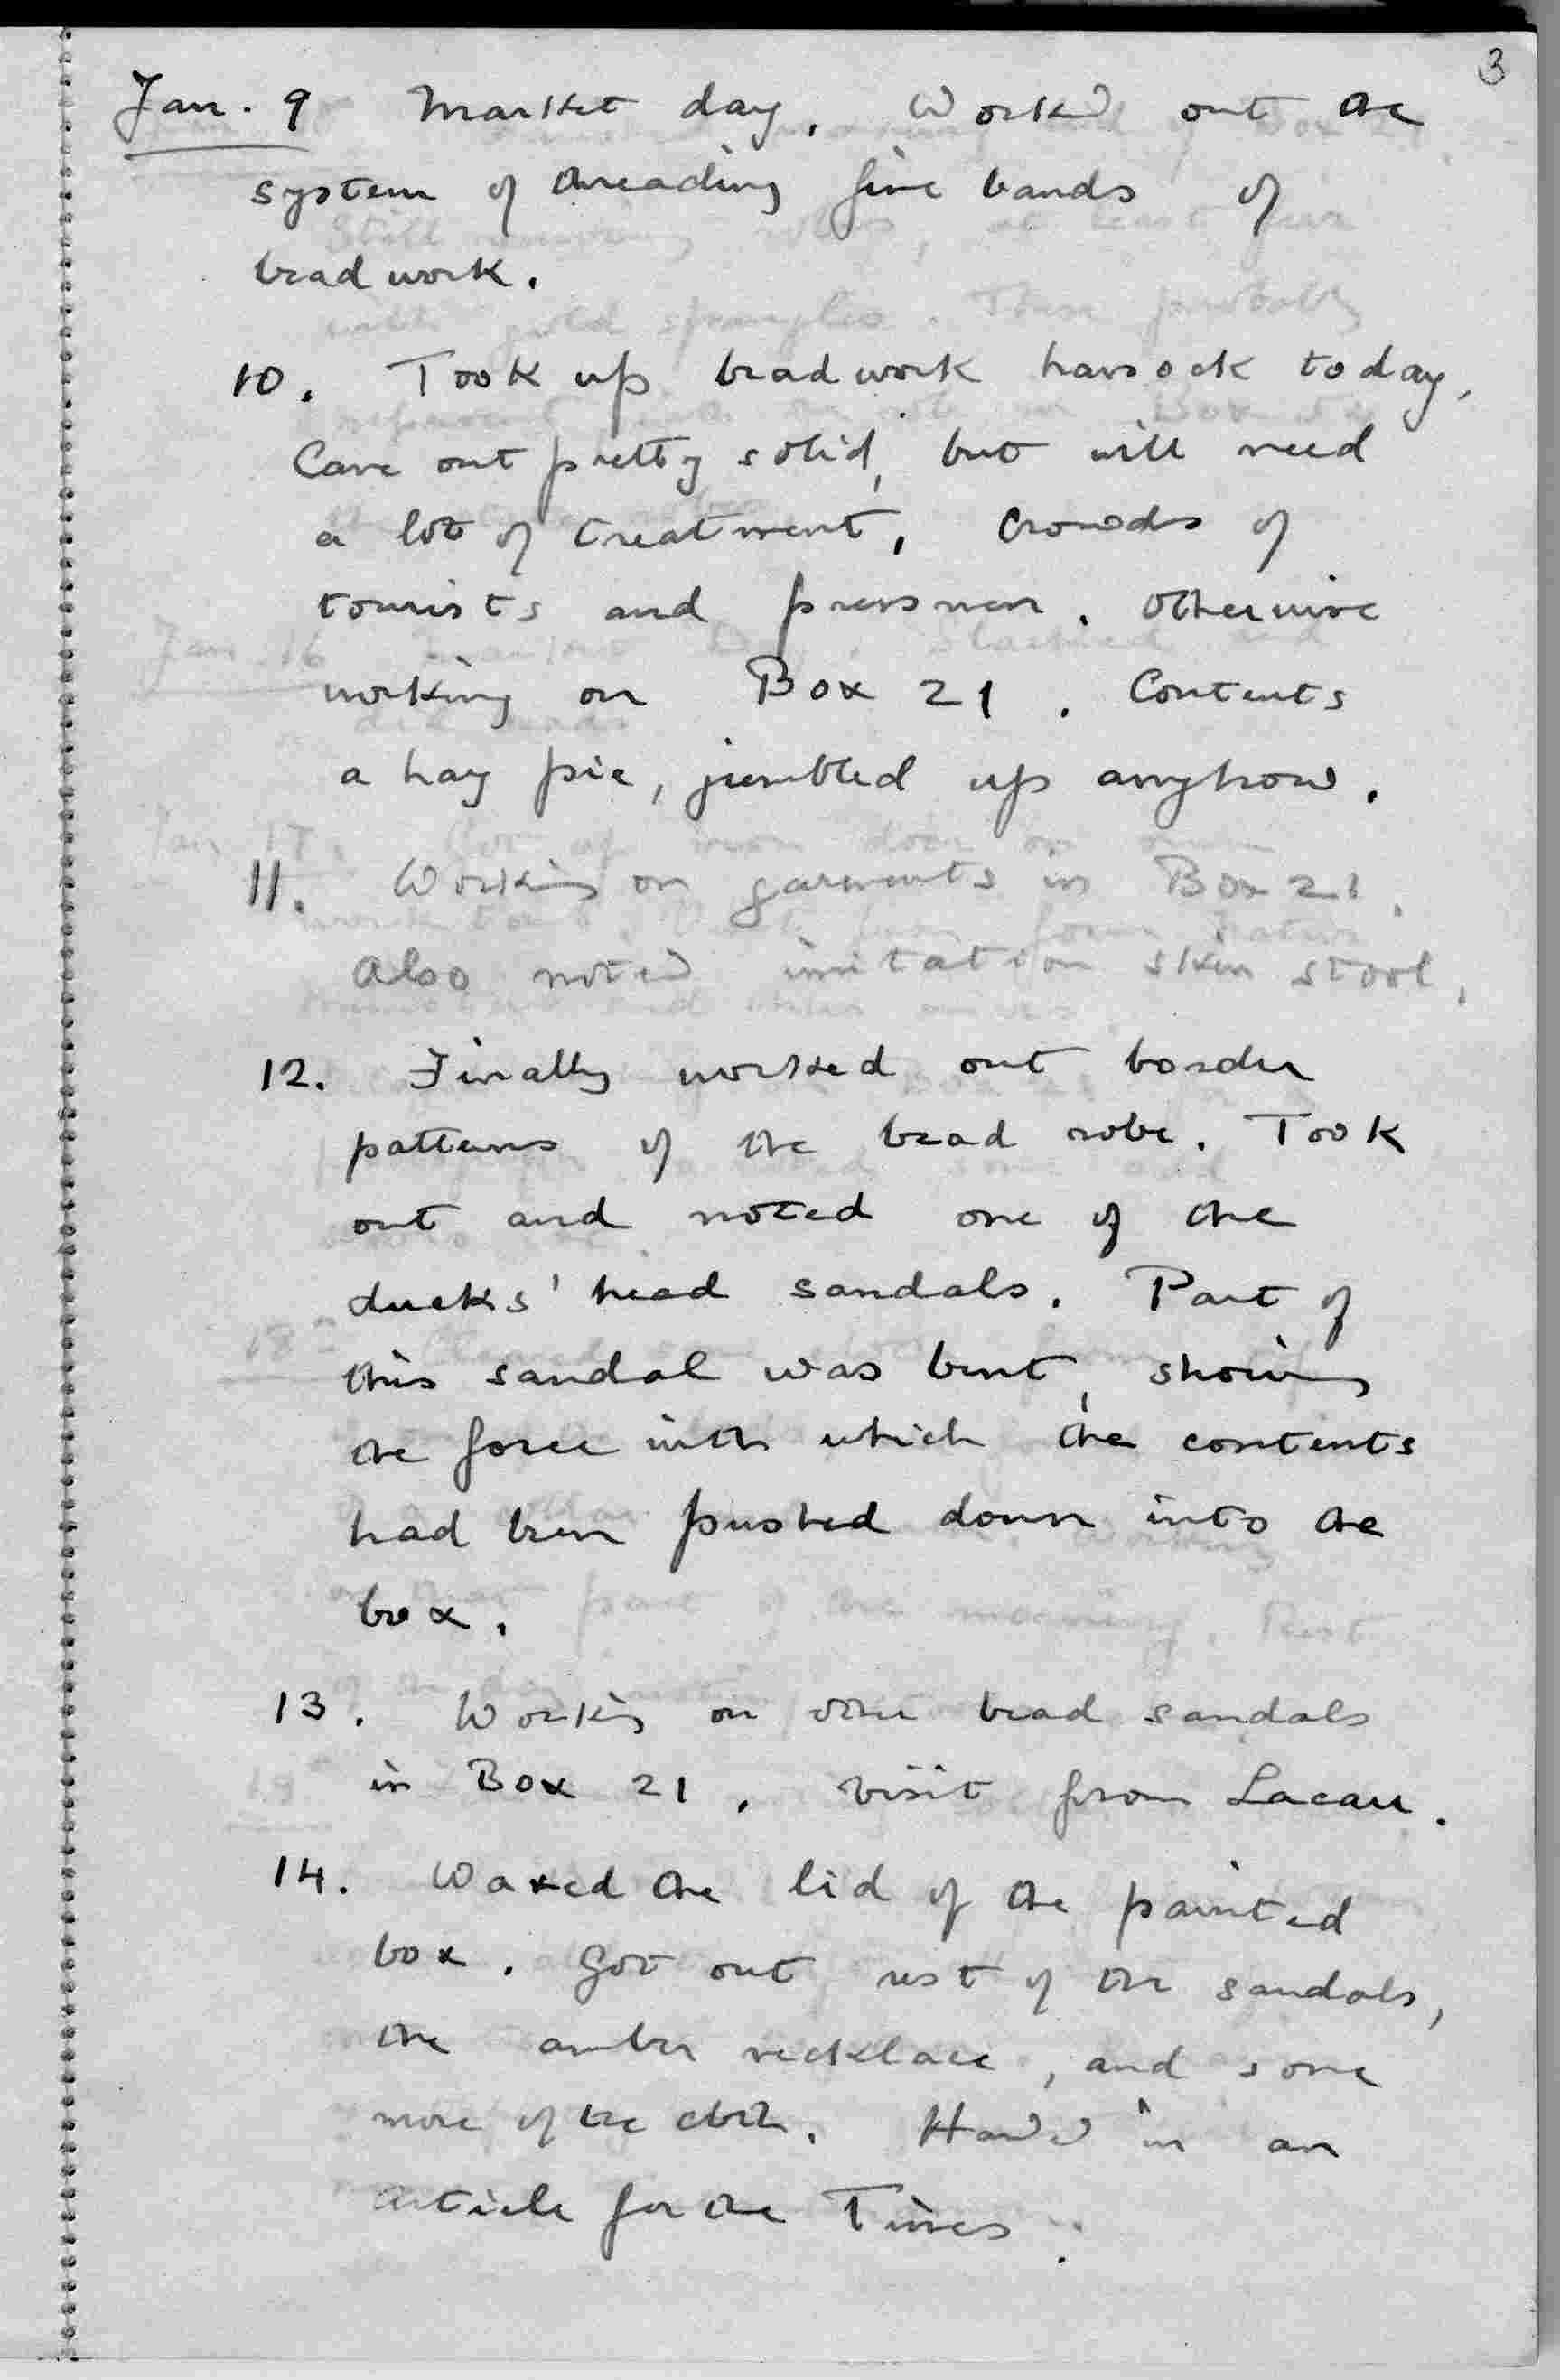 3
Jan. 9 Market day. Worked out the
system of threading five bands of
beadwork.
10. Took up beadwork hassock today.
Came out pretty solid, but will need
a lot of treatment. Crowds of
tourists and pressmen. Otherwise
working on Box 21. Contents
a hay pie, jumbled up anyhow.
11. Working on garments in Box 21.
Also noted imitation skin stool.
12. Finally worked out border
patterns of the bead robe. Took
out and noted one of the
ducks' head sandals. Part of
this sandal was bent, showing
the force with which the contents
had been pushed down into the
box.
13. Working on other bead sandals
in Box 21. Visit from Lacau.
14. Waxed the lid of the painted
box. Got out rest of the sandals,
the amber necklace, and some
more of the cloth. Handed in an
article for the Times.